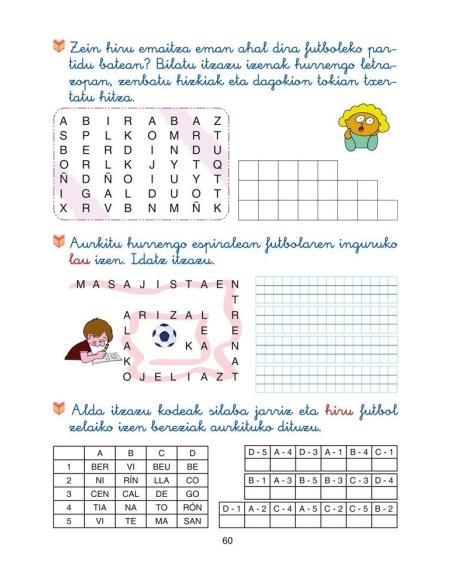 Zein hiru emaitza eman ahal dira futboleko par-
tidu batean? Bilatu itzazu izenak hurrengo letra-
zopan, zenbatu hizkiak eta dagokion tokian txer-
tatu hitza.
A B I R A B A Z
S P L K O M R T
B E R D I N D U
O R L K J Y T Q
Ñ D Ñ O I U Y T
I G A L D U O T
X R V B N M Ñ K
Aurkitu hurrengo espiralean futbolaren inguruko
lau izen. Idatz itzazu.
M A S A J I S T A E N
T
A R I Z A L R
L E E
A K A N
K A
O J E L I A Z T
Alda itzazu kodeak silaba jarriz eta hiru futbol
zelaiko izen bereziak aurkituko dituzu.
A B C D
1 BER VI BEU BE
2 NI RÍN LLA CO
3 CEN CAL DE GO
4 TIA NA TO RÓN
5 VI TE MA SAN
D - 5 A - 4 D - 3 A - 1 B - 4 C - 1
B - 1 A - 3 B - 5 B - 3 C - 3 D - 4
D - 1 A - 2 C - 4 A - 5 C - 2 C - 5 B - 2
60